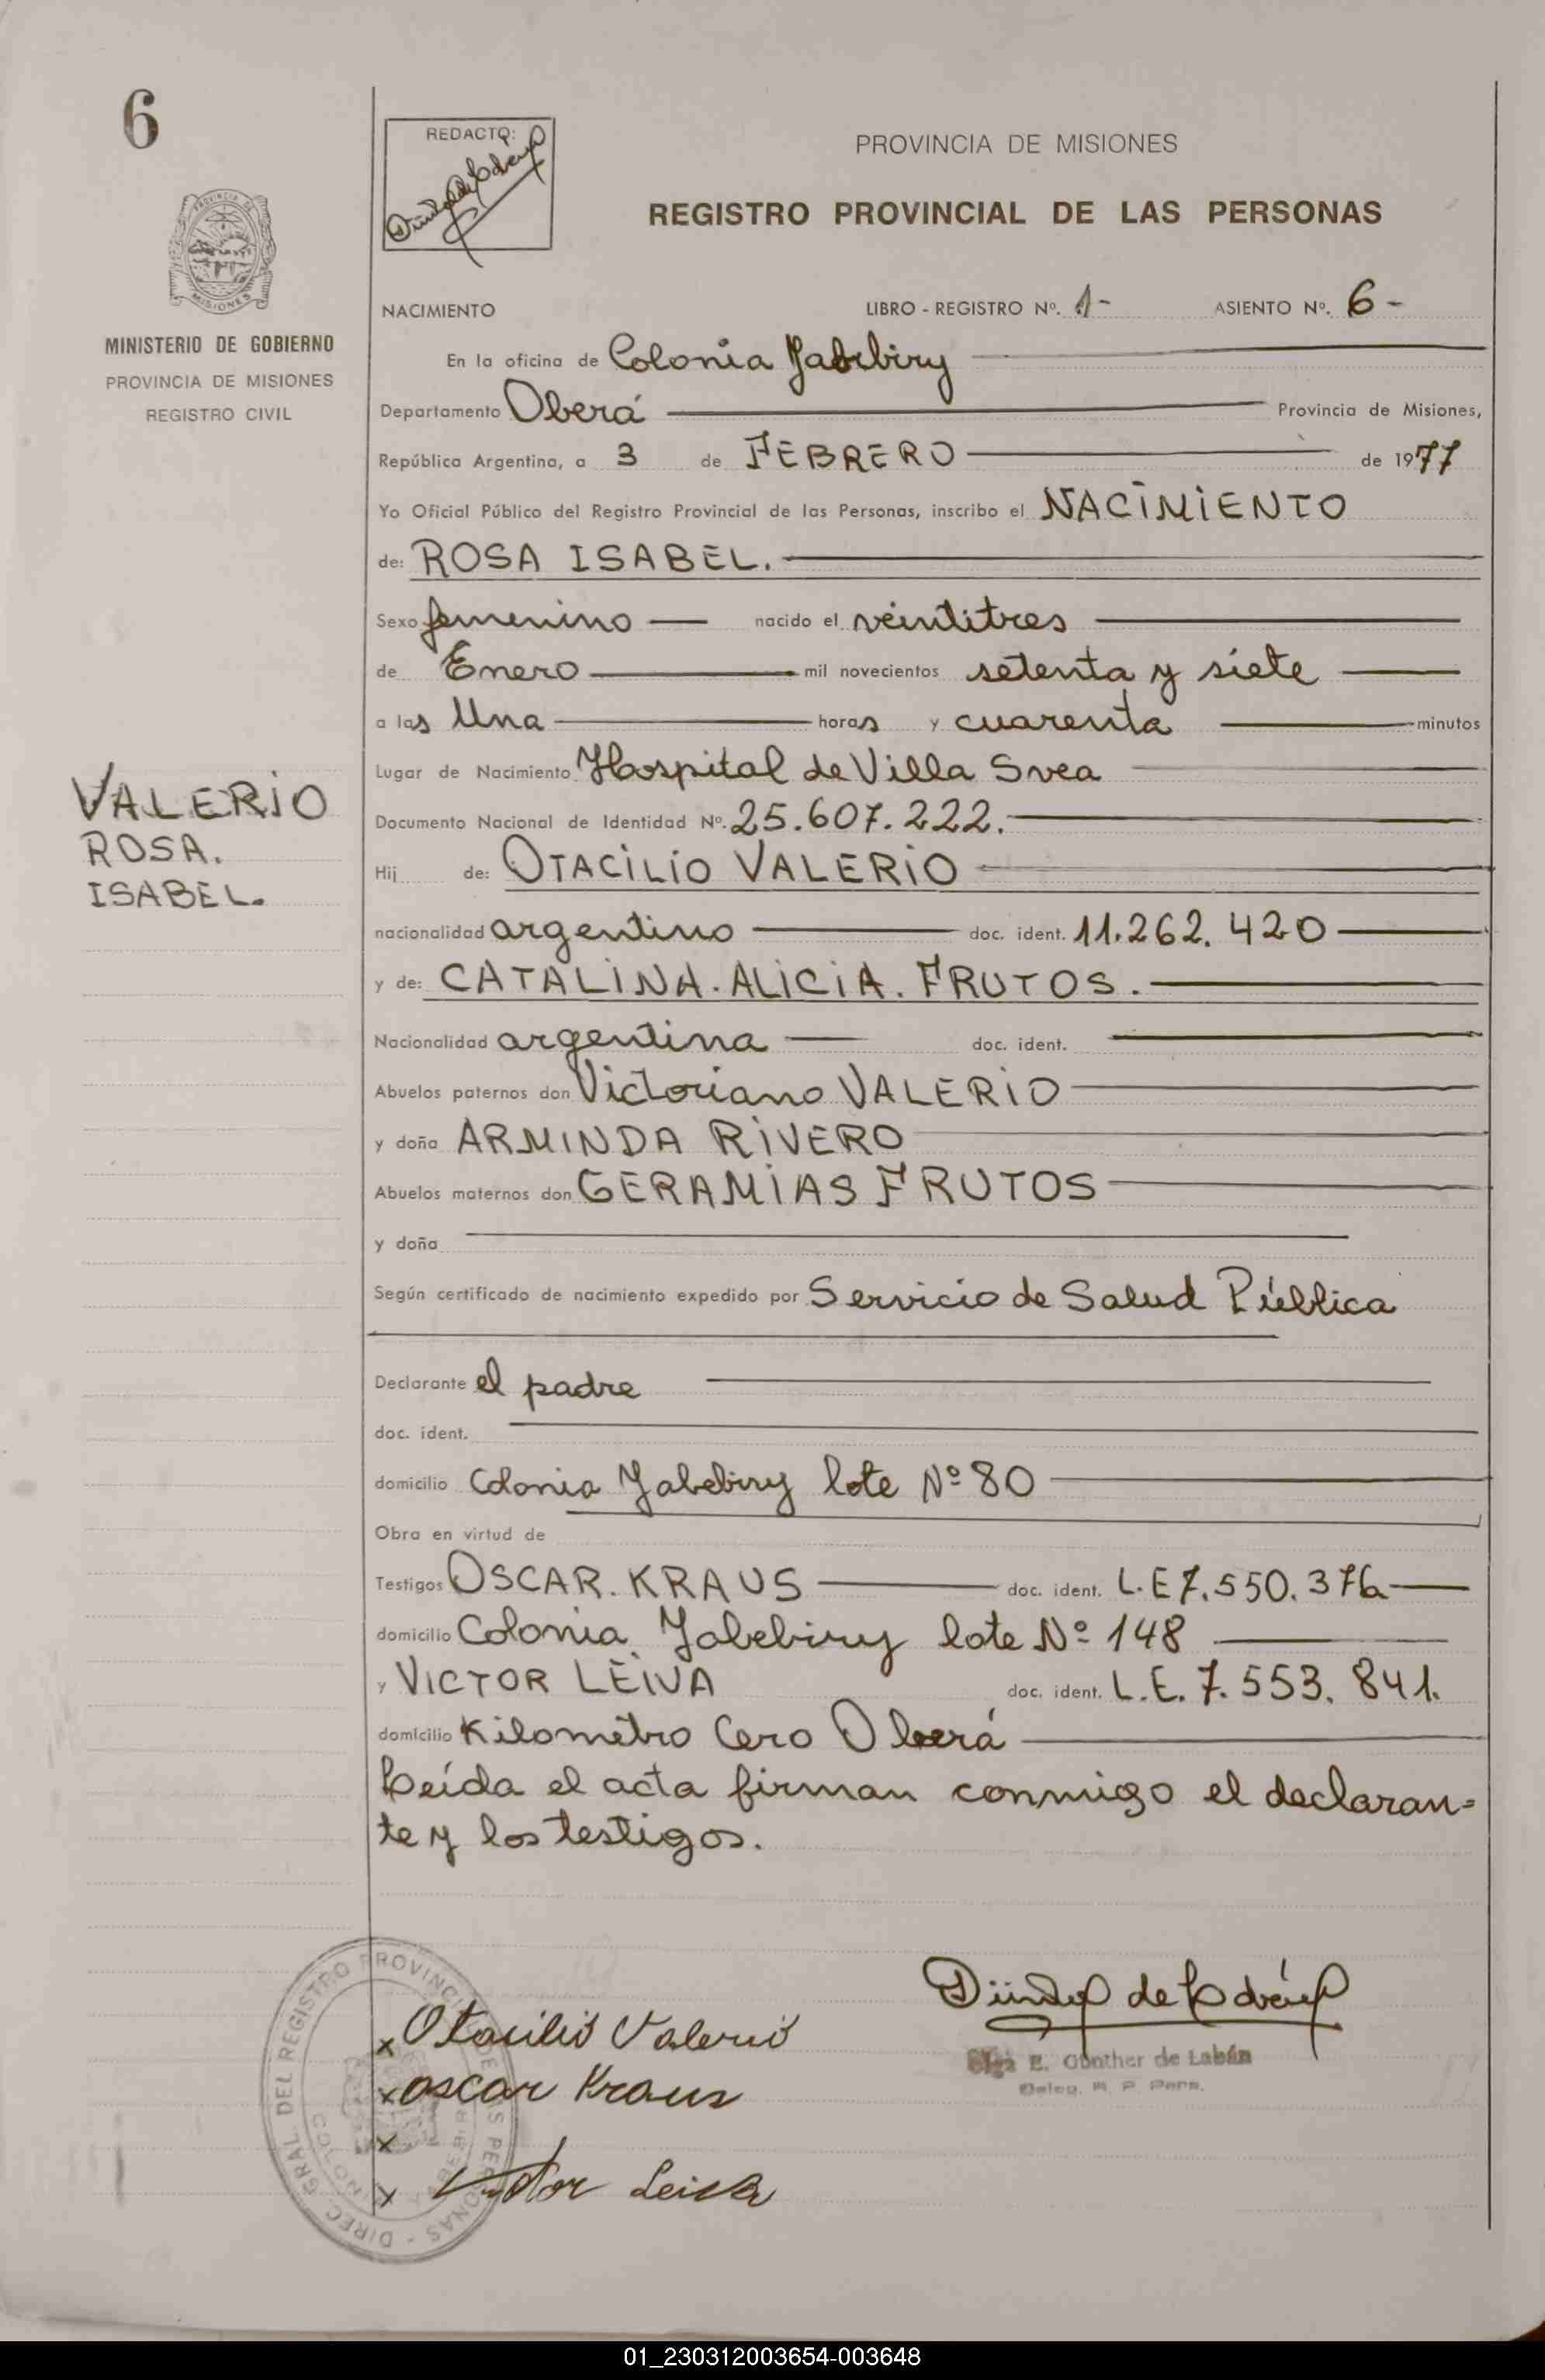 6
REDACTO:
PROVINCIA DE MISIONES
REGISTRO PROVINCIAL DE LAS PERSONAS
MISIONES
MINISTERIO DE GOBIERNO
PROVINCIA DE MISIONES
REGISTRO CIVIL
NACIMIENTO LIBRO - REGISTRO Nº. 1- ASIENTO Nº. 6 -
En la oficina de Colonia Yabebiry
Departamento Oberá Provincia de Misiones,
República Argentina, a 3 de FEBRERO de 1977
Yo Oficial Público del Registro Provincial de las Personas, inscribo el NACIMIENTO
de: ROSA ISABEL.
Sexo femenino nacido el veintitres
de Enero mil novecientos setenta y siete
a las Una horas y cuarenta minutos
Lugar de Nacimiento Hospital de Villa Svea
VALERIO
ROSA.
ISABEL.
Documento Nacional de Identidad Nº. 25.607.222.
Hij de: OTACILIO VALERIO
nacionalidad argentino doc. ident. 11.262.420
y de: CATALINA. ALICIA. FRUTOS.
Nacionalidad argentina doc. ident.
Abuelos paternos don Victoriano VALERIO
y doña ARMINDA RIVERO
Abuelos maternos don GERAMIAS FRUTOS
y doña
Según certificado de nacimiento expedido por Servicio de Salud Pública
Declarante el padre
doc. ident.
domicilio Colonia Yabebiry lote Nº 80
Obra en virtud de
Testigos OSCAR. KRAUS doc. ident. L.E 7.550.376
domicilio Colonia Yabebiry lote Nº 148
y VICTOR LEIVA doc. ident. L.E. 7.553.841.
domicilio Kilometro Cero Oberá
Leída el acta firman conmigo el declaran=
te y los testigos.
DIREC. GRAL. DEL REGISTRO PROVINCIAL DE LAS PERSONAS
x Otacilio Valerio
x oscar Kraus
x
x Victor Leiva
Olga E. Günther de Labán
Deleg. R. P. Pers.
01_230312003654-003648